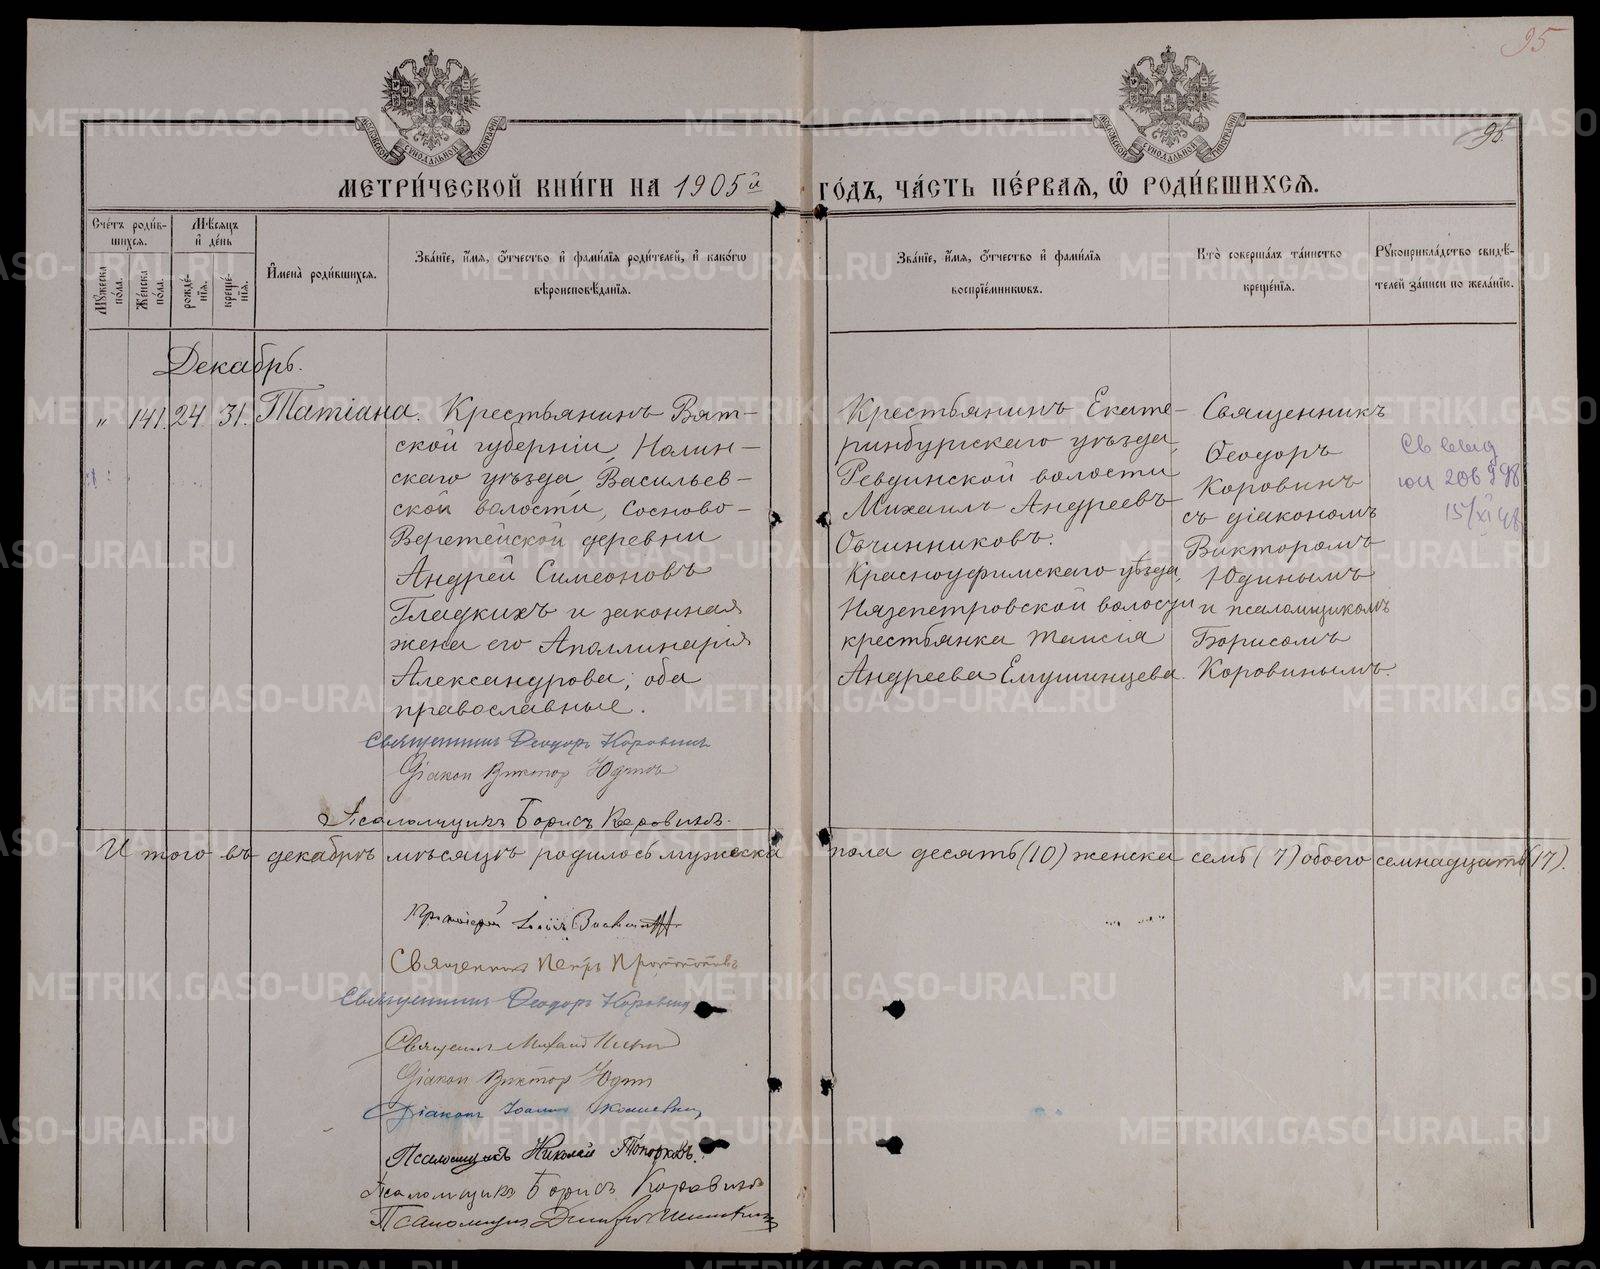 95
95.
МЕТРИ́ЧЕСКОЙ КНИ́ГИ НА 1905й ГО́ДЪ, ЧА́СТЬ ПЕ́РВАЯ, Ѿ РОДИ́ВШИХСЯ.
Сче́тъ роди́в-
шихся.
Мѣ́сяцъ
и де́нь
Му́жеска по́ла.
Же́нска по́ла.
рожде́-
нїя.
креще́-
нїя.
Имена̀ роди́вшихся.
Зва́нїе, и́мя, о́тчество и фами́лїя роди́телей, и како́гѡ
вѣроисповѣ́данїя.
Зва́нїе, и́мя, о́тчество и фами́лїя
воспрїе́мникѡвъ.
Кто̀ соверша́лъ та́инство
креще́нїя.
Рукоприкла́дство свидѣ́-
телей за́писи по жела́нїю.
Декабрь.
" 141. 24 31. Татіана.
Крестьянинъ Вят-
ской губерніи, Нолин-
скаго уѣзда, Васильев-
ской волости, Сосново-
Веретейской деревни
Андрей Симеоновъ
Гладкихъ и законная
жена его Аполлинарія
Александрова; оба
православные.
Крестьянинъ Екате-
ринбургскаго уѣзда,
Ревдинской волости
Михаилъ Андреевъ
Овчинниковъ.
Красноуфимскаго уѣзда,
Нязепетровской волости
крестьянка Таисія
Андреева Емушинцева.
Священникъ
Ѳеодоръ
Коровинъ
съ діакономъ
Викторомъ
Юдинымъ
и псаломщикомъ
Борисомъ
Коровинымъ.
Священникъ Ѳеодоръ Коровинъ
Діаконъ Викторъ Юдинъ
Псаломщикъ Борисъ Коровинъ.
Итого въ декабрѣ мѣсяцѣ родилось мужеска пола десять (10) женска семь (7) обоего семнадцать (17).
Священникъ Петръ Протопоповъ
Священникъ Ѳеодоръ Коровинъ
Священникъ Михаилъ
Діаконъ Викторъ Юдинъ
Діаконъ Іоаннъ
Псаломщикъ Николай Топорковъ.
Псаломщикъ Борисъ Коровинъ
Псаломщикъ Димитрій
METRIKI.GASO-URAL.RU